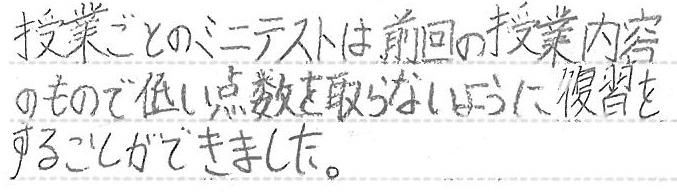 授業ごとのミニテストは前回の授業内容
のもので低い点数を取らないように復習を
することができました。